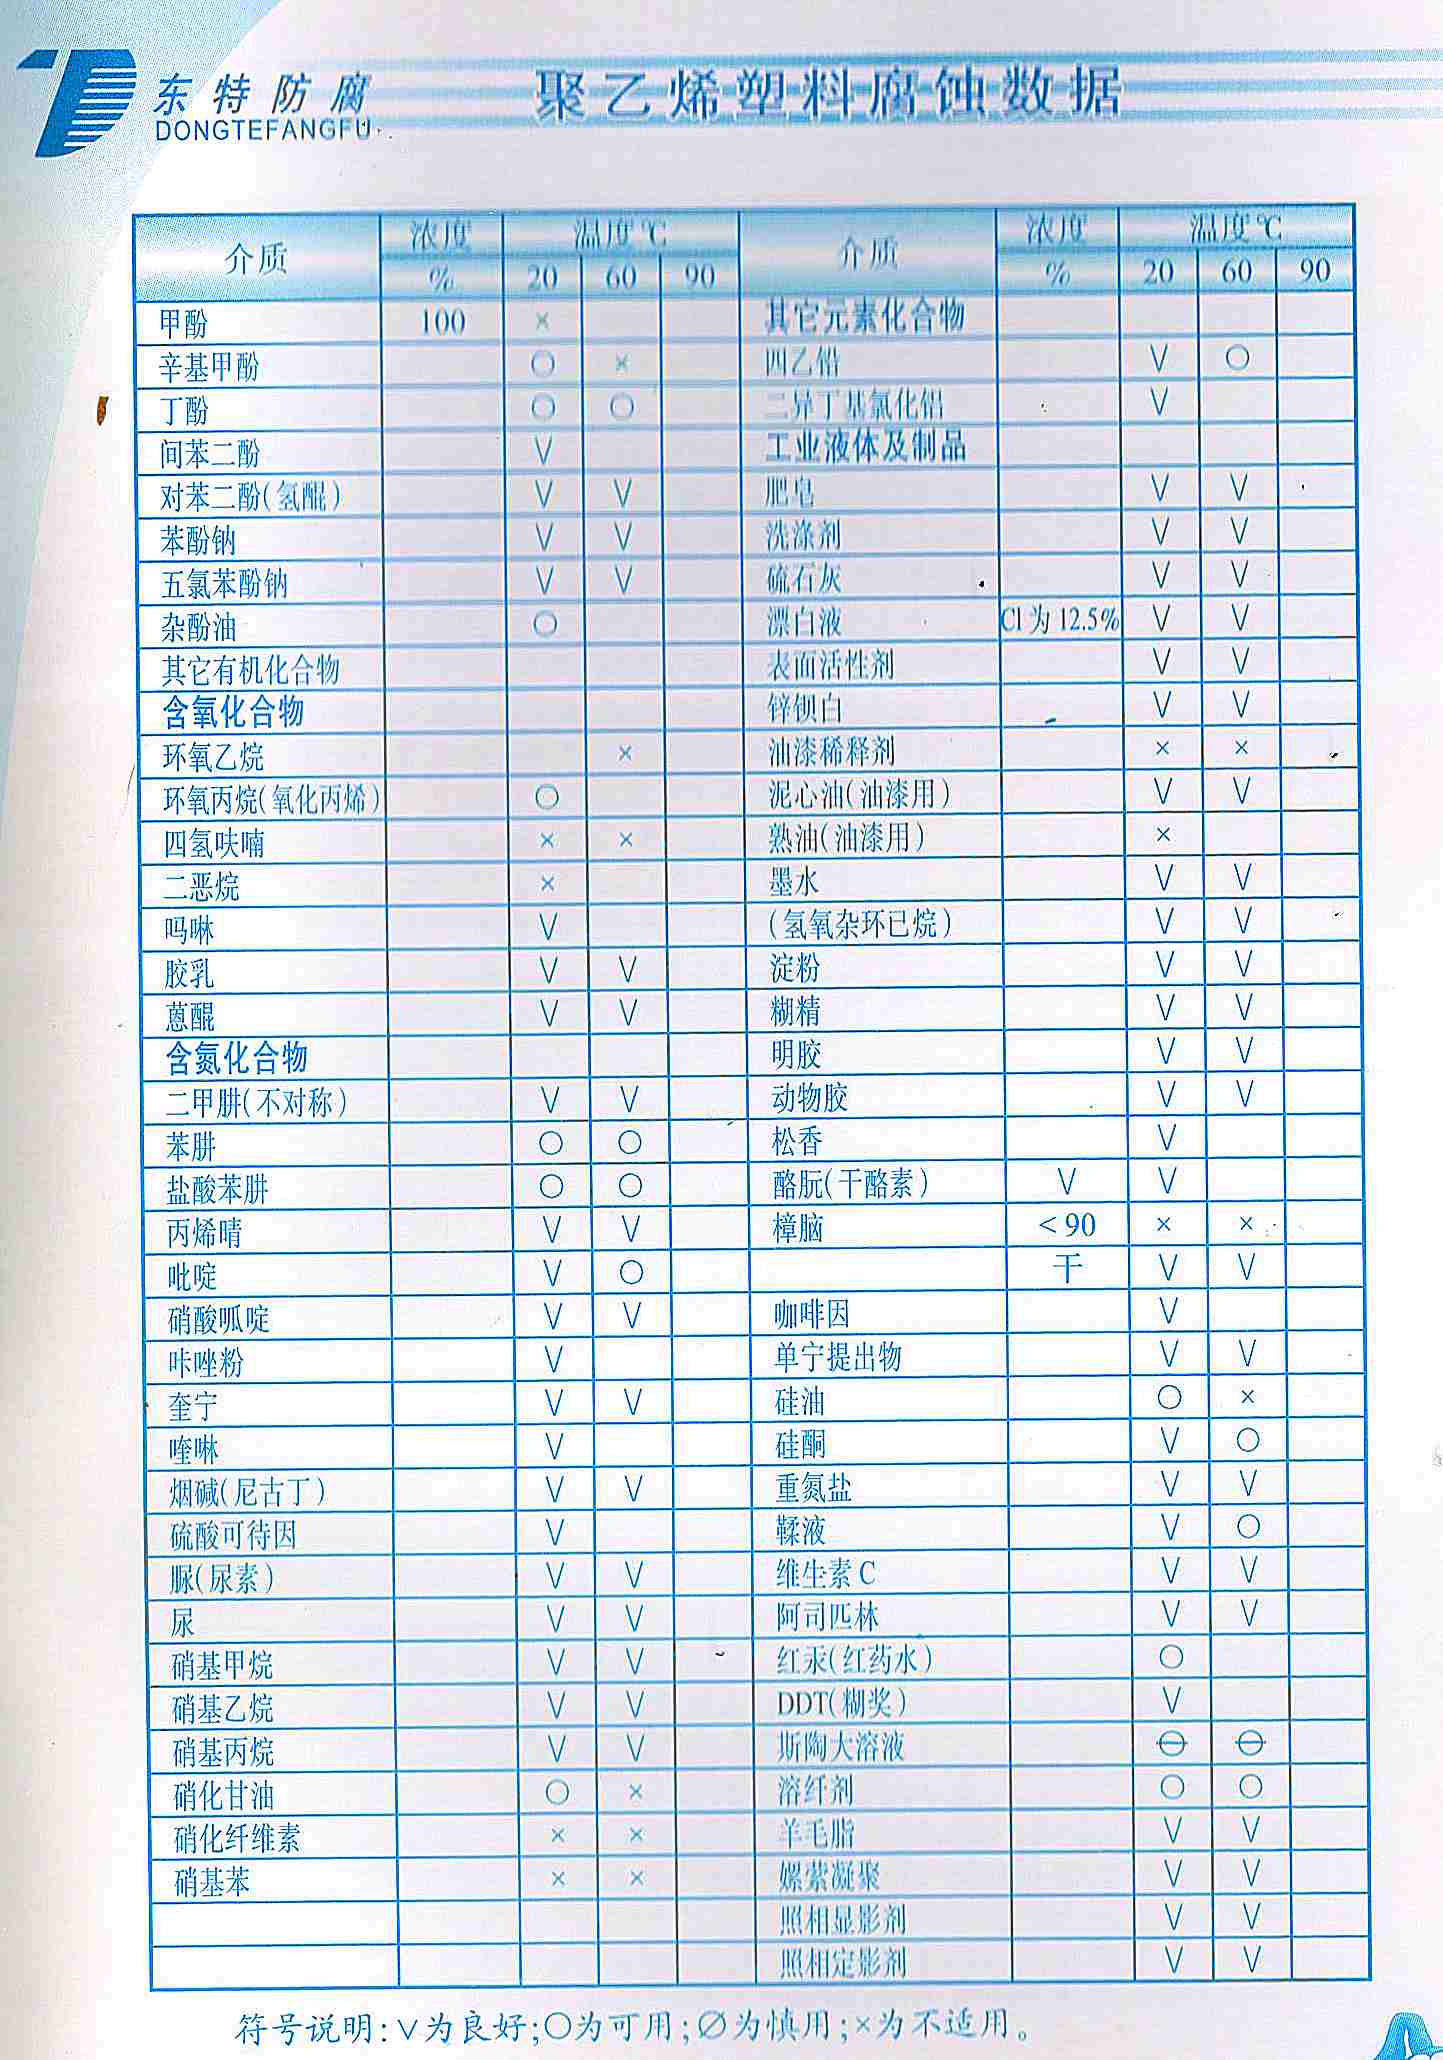 东特防腐
DONGTEFANGFU
聚乙烯塑料腐蚀数据
介质 浓度 温度℃ 介质 浓度 温度℃
% 20 60 90 % 20 60 90
甲酚 100 × 其它元素化合物
辛基甲酚 ○ × 四乙铅 V ○
丁酚 ○ ○ 二异丁基氯化铝 V
间苯二酚 V 工业液体及制品
对苯二酚(氢醌) V V 肥皂 V V
苯酚钠 V V 洗涤剂 V V
五氯苯酚钠 V V 硫石灰 V V
杂酚油 ○ 漂白液 Cl为12.5% V V
其它有机化合物 表面活性剂 V V
含氧化合物 锌钡白 V V
环氧乙烷 × 油漆稀释剂 × ×
环氧丙烷(氧化丙烯) ○ 泥心油(油漆用) V V
四氢呋喃 × × 熟油(油漆用) ×
二恶烷 × 墨水 V V
吗啉 V (氢氧杂环已烷) V V
胶乳 V V 淀粉 V V
蒽醌 V V 糊精 V V
含氮化合物 明胶 V V
二甲肼(不对称) V V 动物胶 V V
苯肼 ○ ○ 松香 V
盐酸苯肼 ○ ○ 酪朊(干酪素) V V
丙烯晴 V V 樟脑 <90 × ×
吡啶 V ○ 干 V V
硝酸呱啶 V V 咖啡因 V
咔唑粉 V 单宁提出物 V V
奎宁 V V 硅油 ○ ×
喹啉 V 硅酮 V ○
烟碱(尼古丁) V V 重氮盐 V V
硫酸可待因 V 鞣液 V ○
脲(尿素) V V 维生素C V V
尿 V V 阿司匹林 V V
硝基甲烷 V V 红汞(红药水) ○
硝基乙烷 V V DDT(糊奖) V
硝基丙烷 V V 斯陶大溶液 ⊖ ⊖
硝化甘油 ○ × 溶纤剂 ○ ○
硝化纤维素 × × 羊毛脂 V V
硝基苯 × × 嫘萦凝聚 V V
照相显影剂 V V
照相定影剂 V V
符号说明:V为良好;○为可用;∅为慎用;×为不适用。